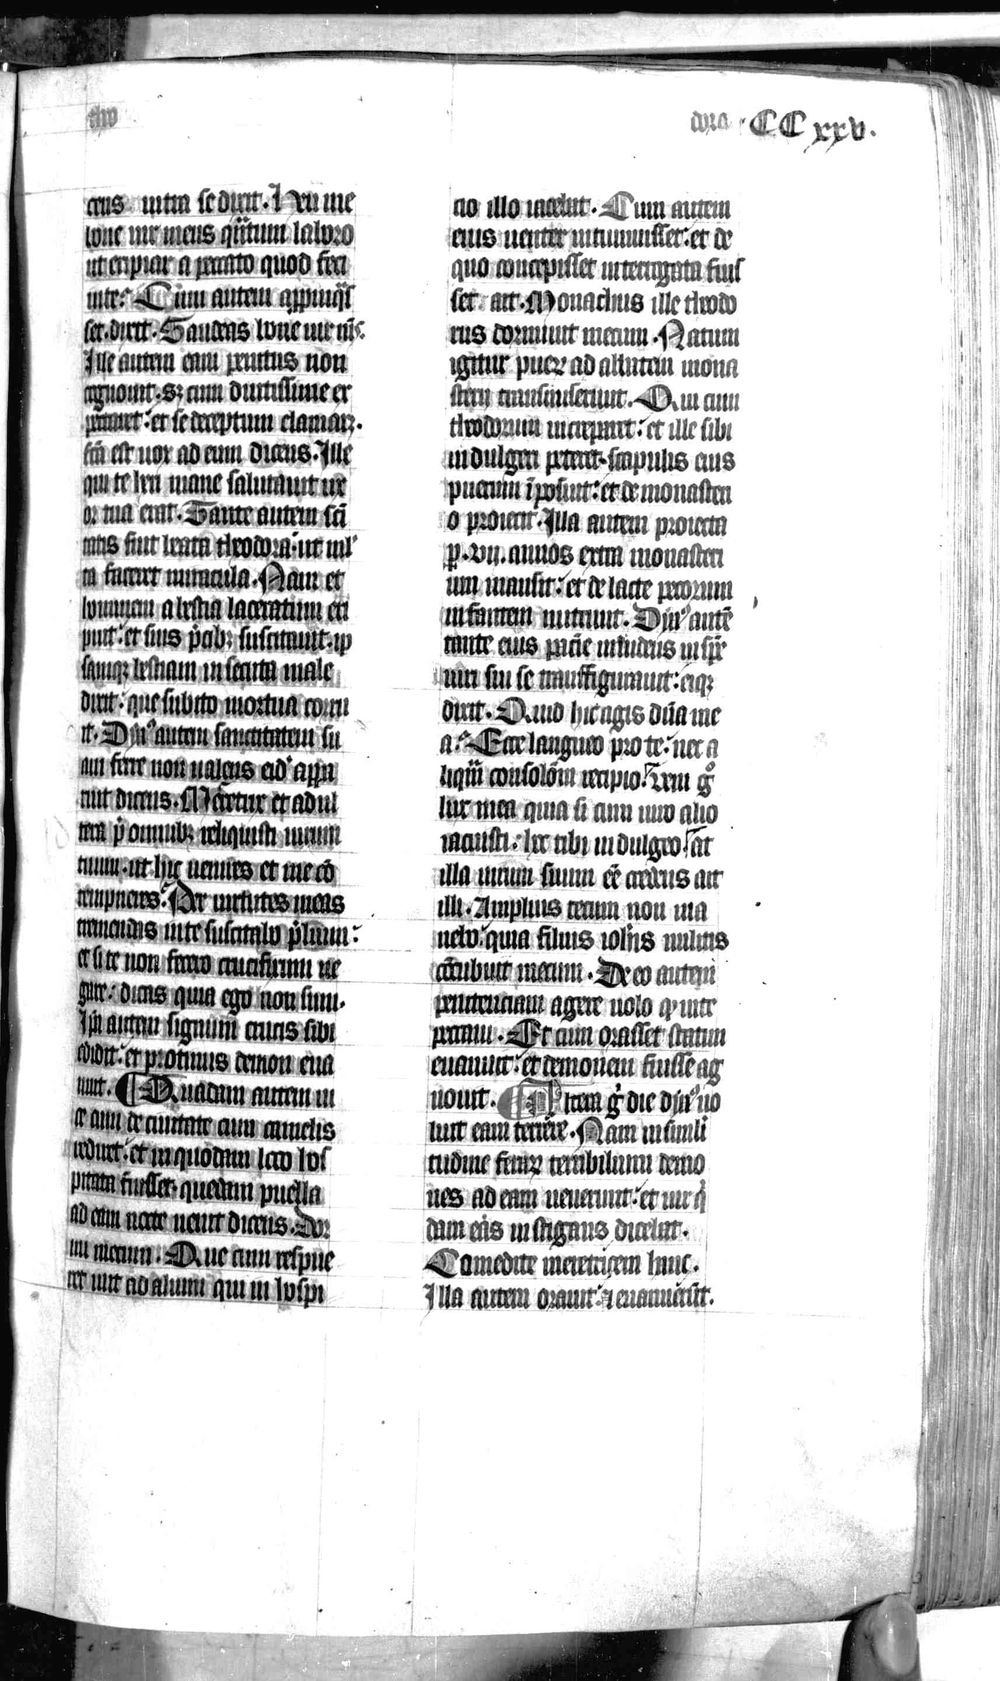 theo
dora CCxxv.
cens intra se dixit. Heu me
bone vir meus qntum laboro
ut eripiar a peccato quod feci
in te. Cum autem appinqs
set. dixit. Gaudeas bone vir mi.
Ille autem eam penitus non
agnovit. sz cum diutissime ex
pectaret. et se deceptum clamarz.
fca est vox ad eum dicens. Ille
qui te heri mane salutavit ux
or tua erat. Tante autem sci
tatis fuit beata theodora. ut mul
ta faceret miracula. Nam et
hominem a bestia laceratum eri
puit. et suis pcibz suscitavit. ip
samqz bestiam insecuta male
dixit. que subito mortua corru
it. Dyus autem sanctitatem su
am ferre non valens eidem appa
ruit dicens. Meretrix et adul
tera p omnibz reliquisti virum
tuum. ut huc venires et me con
tempneres. Per virtutes meas
tremendas in te suscitabo plium.
et si te non fecero crucifixum ne
gare. dicas quia ego non sum.
Ipa autem signum crucis sibi
edidit. et protinus demon eva
nuit. Quadam autem vi
ce cum de civitate cum camelis
rediret. et in quodam loco hos
pitata fuisset. quedam puella
ad eam nocte venit dicens. Dor
mi mecum. Que cum respue
ret ivit ad alium qui in hospi
cio illo iacebat. Cum autem
eius venter intumuisset. et de
quo concepisset interrogata fuis
set. ait. Monachus ille theodo
rus dormivit mecum. Natum
igitur puerz ad abbatem mona
sterii transmiserunt. Qui cum
theodorum increparet. et ille sibi
indulgeri peteret. scapulis eius
puerum iposuit. et de monasteri
o proiecit. Illa autem proiecta
p. vii. annos extra monasteri
um mansit. et de lacte pecorum
infantem nutrivit. Dyus autem
tante eius pacie invidens in spe
viri sui se transfiguravit. eiqz
dixit. Quid hic agis dna me
a. Ecce langueo pro te. nec a
liqm consolom recipio. Veni go
lux mea quia si cum viro alio
iacuisti. hec tibi indulgeo. At
illa virum suum ee credens ait
illi. Amplius tecum non ma
nebo. quia filius iohis militis
concubuit mecum. De eo autem
penitenciam agere volo q in te
peccavi. Et cum orasset statim
evanuit. et demonem fuisse ag
novit. Item qdie dyus vo
luit eam terrere. Nam in simili
tudine ferarz terribilium demo
nes ad eam venerunt. et vir q
dam eas instigans dicebat.
Comedite meretricem hanc.
Illa autem oravit. et evanuerut.